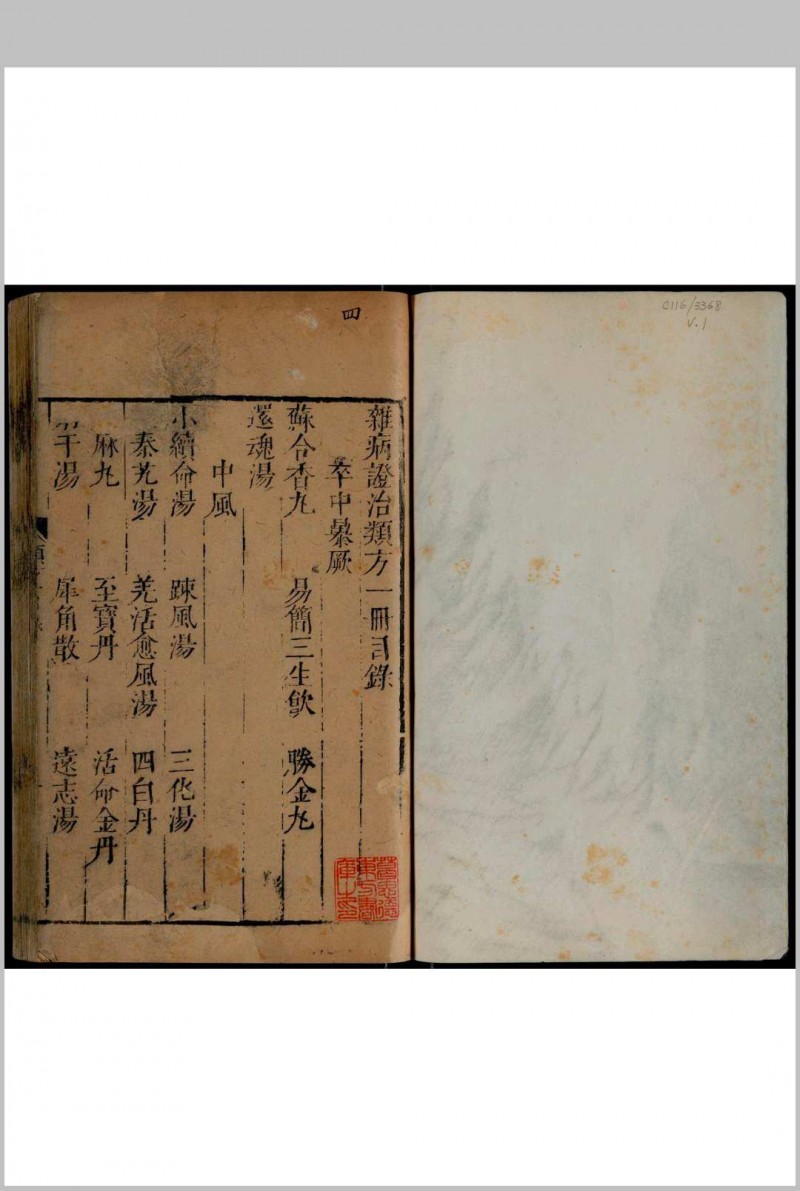 雜病證治類方一冊目錄
卒中暴厥
蘇合香丸 易簡三生飲 勝金丸
還魂湯
中風
小續命湯 踈風湯 三化湯
秦艽湯 羗活愈風湯 四白丹
麻丸 至寶丹 活命金丹
干湯 犀角散 遠志湯
四
C116/3368
V.1